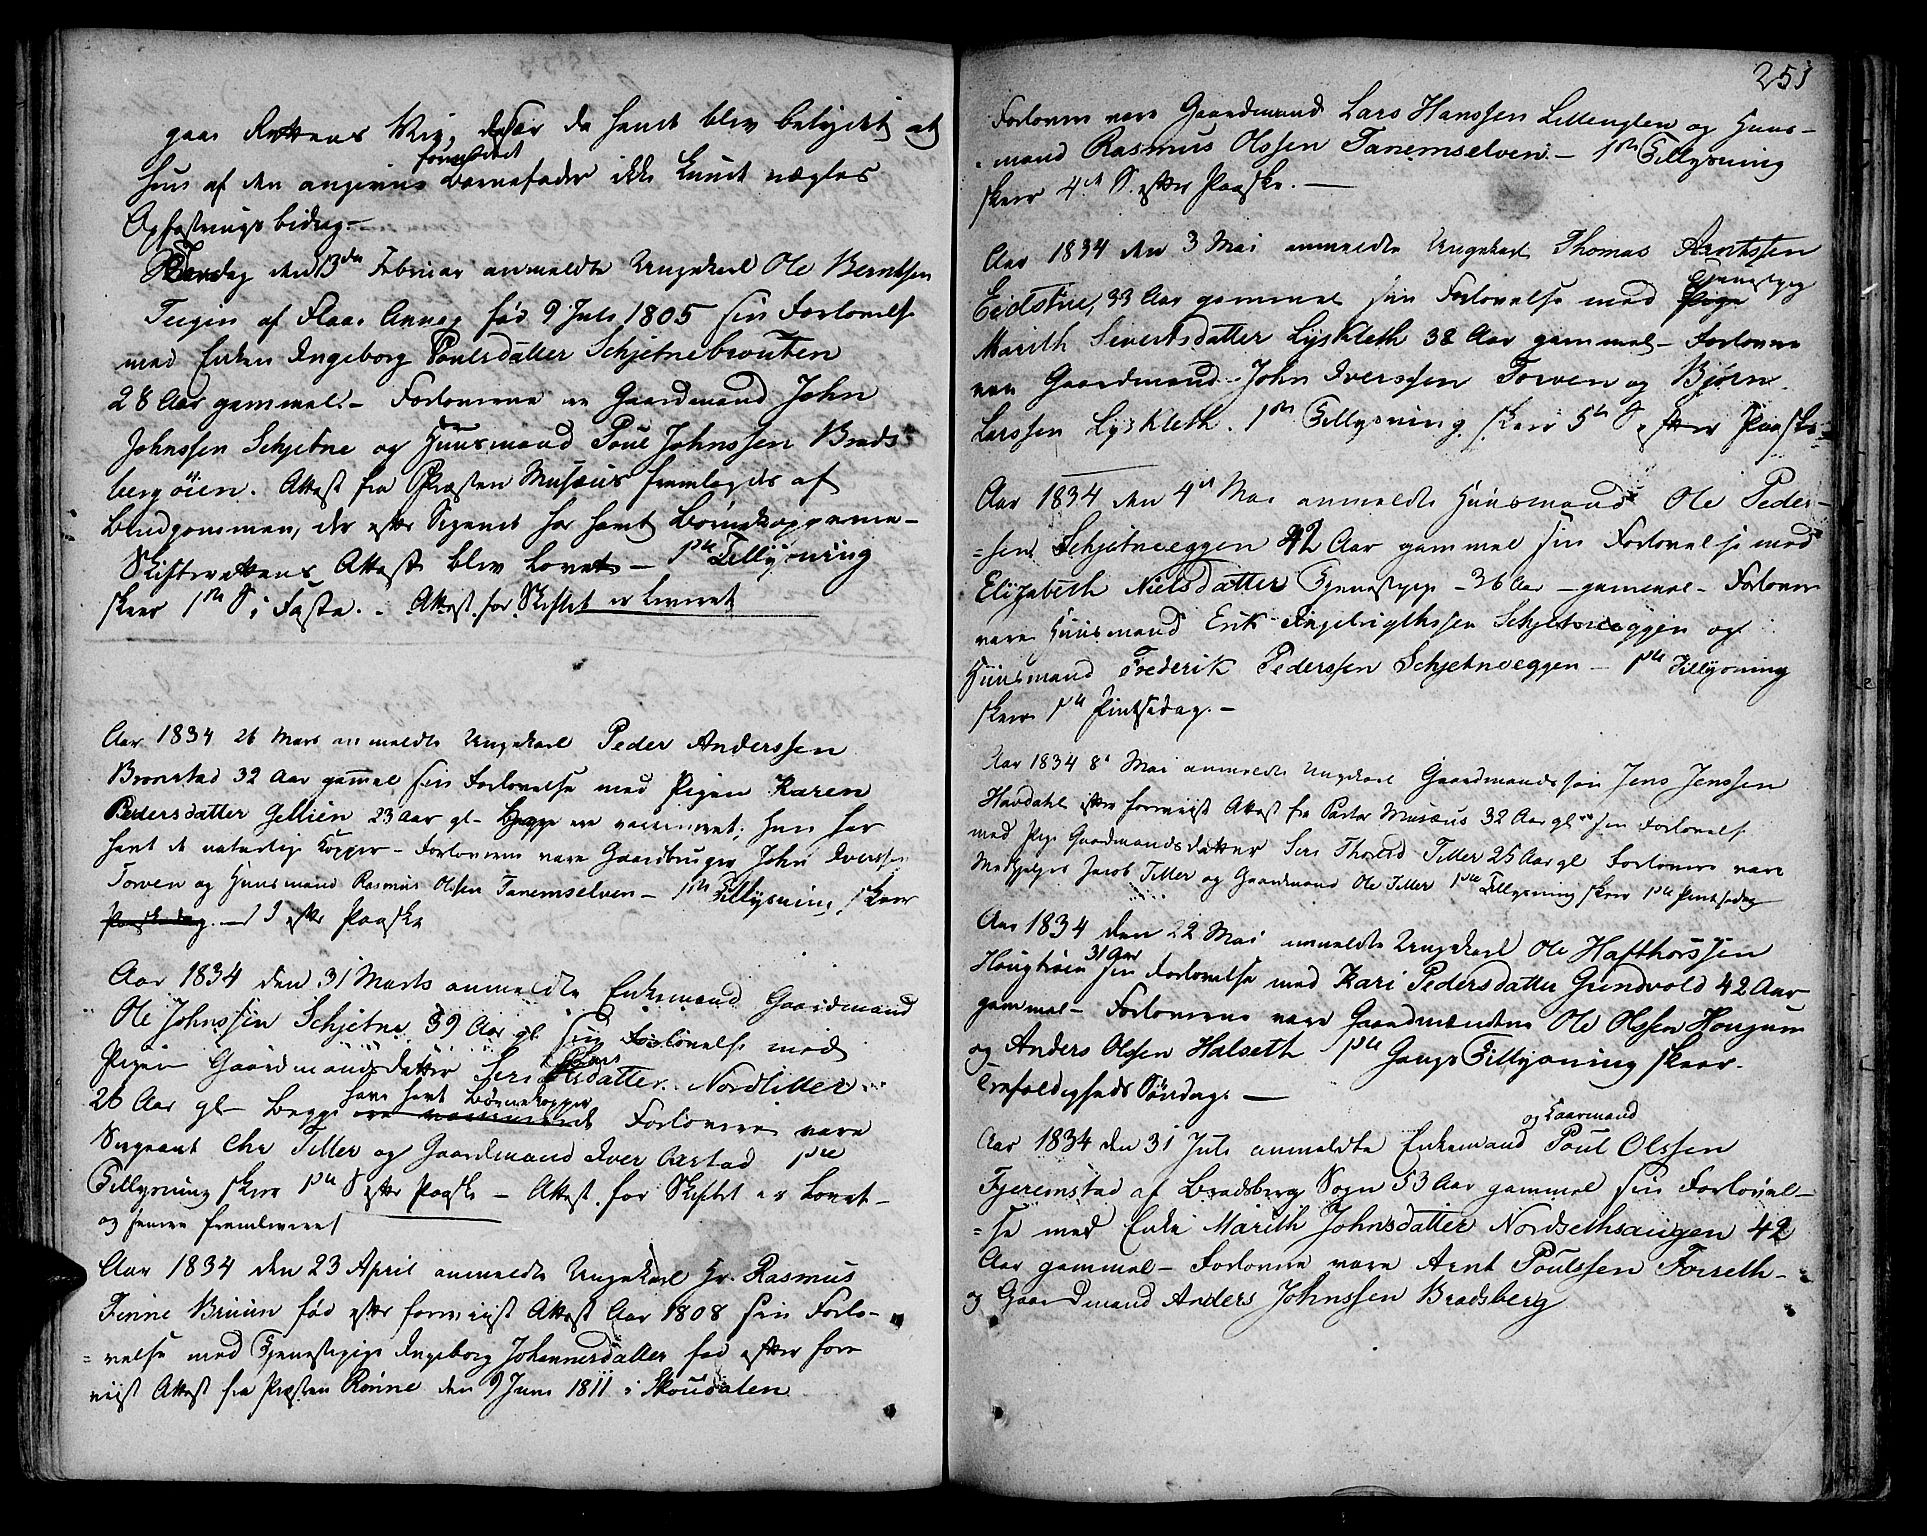 gaae Rettens Vei, da hendt blev betydet at
hun af den angivne formeente Barnefader ikke kunde nægtes
Opfostringsbidrag.—
Torsdag den 13de Februar anmeldte Ungekarl Ole Berntsen
Teigen af Flaae Annex født 9 Juli 1805 sin Forlovelse
med Enken Ingeborg Poulsdatter Schjetnebrouten
28 Aar gammel.— Forloverne ere Gaardmand John
Johnssen Schjetne og Huusmand Poul Johnssen Brads
bergöien. Attest fra Præsten Musæus fremlagdes af
Brudgommen, der efter Sigende har havt Börnekopperne —
Skifterettens Attest blev lovet — 1ste Tillysning
skeer 1ste S i Faste. — Attest for Skiftet er leveret
Aar 1834 26 Mars anmeldte Ungekarl Peder Anderssen
Bronstad 32 Aar gamel sin Forlovelse med Pigen Karen
Pedersdatter Gellien 23 Aar gl — Begge ere vaccineret; hun har
havt de naturlige Kopper — Forloverne vare Gaardbruger John Iverssen
Torven og Huusmand Rasmus Olssen Tanemselven — 1ste Tillysning skeer
Paaskedag. — 1 S efter Paaske
Aar 1834 den 31 Marts anmeldte Enkemand Gaardmand
Ole Johnssen Schjetne 39 Aar gl sin Forlovelse med
Pigen Gaardmandsdatter Seri Larsdatter Nordtiller
26 Aar gl — Begge have havt Börnekopper ere vaccinerede Forlovere vare
Sergeant Chr Tiller og Gaardmand Iver Aastad 1ste
Tillysning skeer 1ste S efter Paaske — Attest for Skiftet er lovet —
og senere fremleveret
Aar 1834 den 23 April anmeldte Ungekarl Hr. Rasmus
Finne Bruun fød efter foreviist Attest Aar 1808 sin Forlo-
= velse med Tjenestepige Ingeborg Johannesdatter fød efter fore
viist Attest fra Præsten Rönne den 9 Juni 1811 i Skoudalen
251
Forlovere vare Gaardmand Lars Hanssen Lillengten og Huus-
= mand Rasmus Olssen Tanemselven — 1ste Tillysning
skeer 4de S. efter Paaske. —
Aar 1834 den 3 Mai anmeldte Ungekarl Thomas Arntssen
Eidstue, 33 Aar gammel sin Forlovelse med Pige Tjenestepg
Marith Sivertsdatter Lyskleth 38 Aar gammel — Forlovere
var Gaardmand John Iverssen Torven og Björn
Larssen Lyskleth. 1ste Tillysning skeer 5te S efter Paaske
Aar 1834 den 4de Mai anmeldte Huusmand Ole Peder-
= sen Schjetneeggen 42 Aar gammel sin Forlovelse med
Elisabeth Nielsdatter Tjenestepge — 36 Aar — gammel — Forlovere
vare Huusmand Erik Engebrigthssen Schjetneeggen og
Huusmand Frederik Pederssen Schjetneeggen — 1ste Tillysning
skeer 1ste Pintsedag. —
Aar 1834 8de Mai anmeldte Ungekarl Gaardmandssön Jens Jenssen
Havdahl efter foreviist Attest fra Pastor Musæus 32 Aar gl sin Forlovelse
med Pige Gaardmandsdatter Seri Thored Tiller 25 Aar gl Forlovere vare
Medhjelper Jacob Tiller og Gaardmand Ole Tiller 1ste Tillysning skeer 1ste Pintsedag
Aar 1834 den 22 Mai anmeldte Ungekarl Ole Hafthorssen
Hougtröen 31 Aar sin Forlovelse med Kari Pedersdatter Grundvold 42 Aar
gammel — Forloverne vare Gaardmændene Ole Olssen Hougum
og Anders Olssen Halseth 1ste Gangs Tillysning skeer
Trefoldigheds Söndag. —
Aar 1834 den 31 Juli anmeldte Enkemand og Kaarmand Poul Olssen
Fjeremstad af Bradsberg Sogn 53 Aar gammel sin Forlovel-
= se med Enke Marith Johnsdatter Nordsethsaugen 42
Aar gammel — Forlovere vare Arnt Poulssen Forreth —
og Gaardmand Anders Johnssen Bradsberg